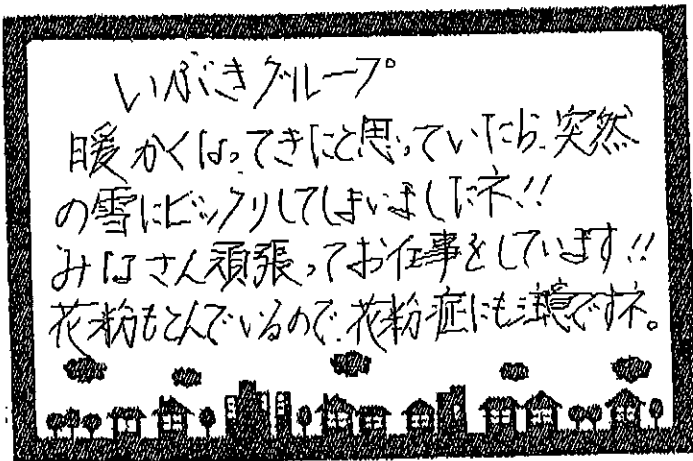 いぶきグループ
暖かくなってきたと思っていたら、突然
の雪にビックリしてしまいましたネ!!
みなさん頑張ってお仕事をしています!!
花粉もとんでいるので、花粉症にも注意ですネ。